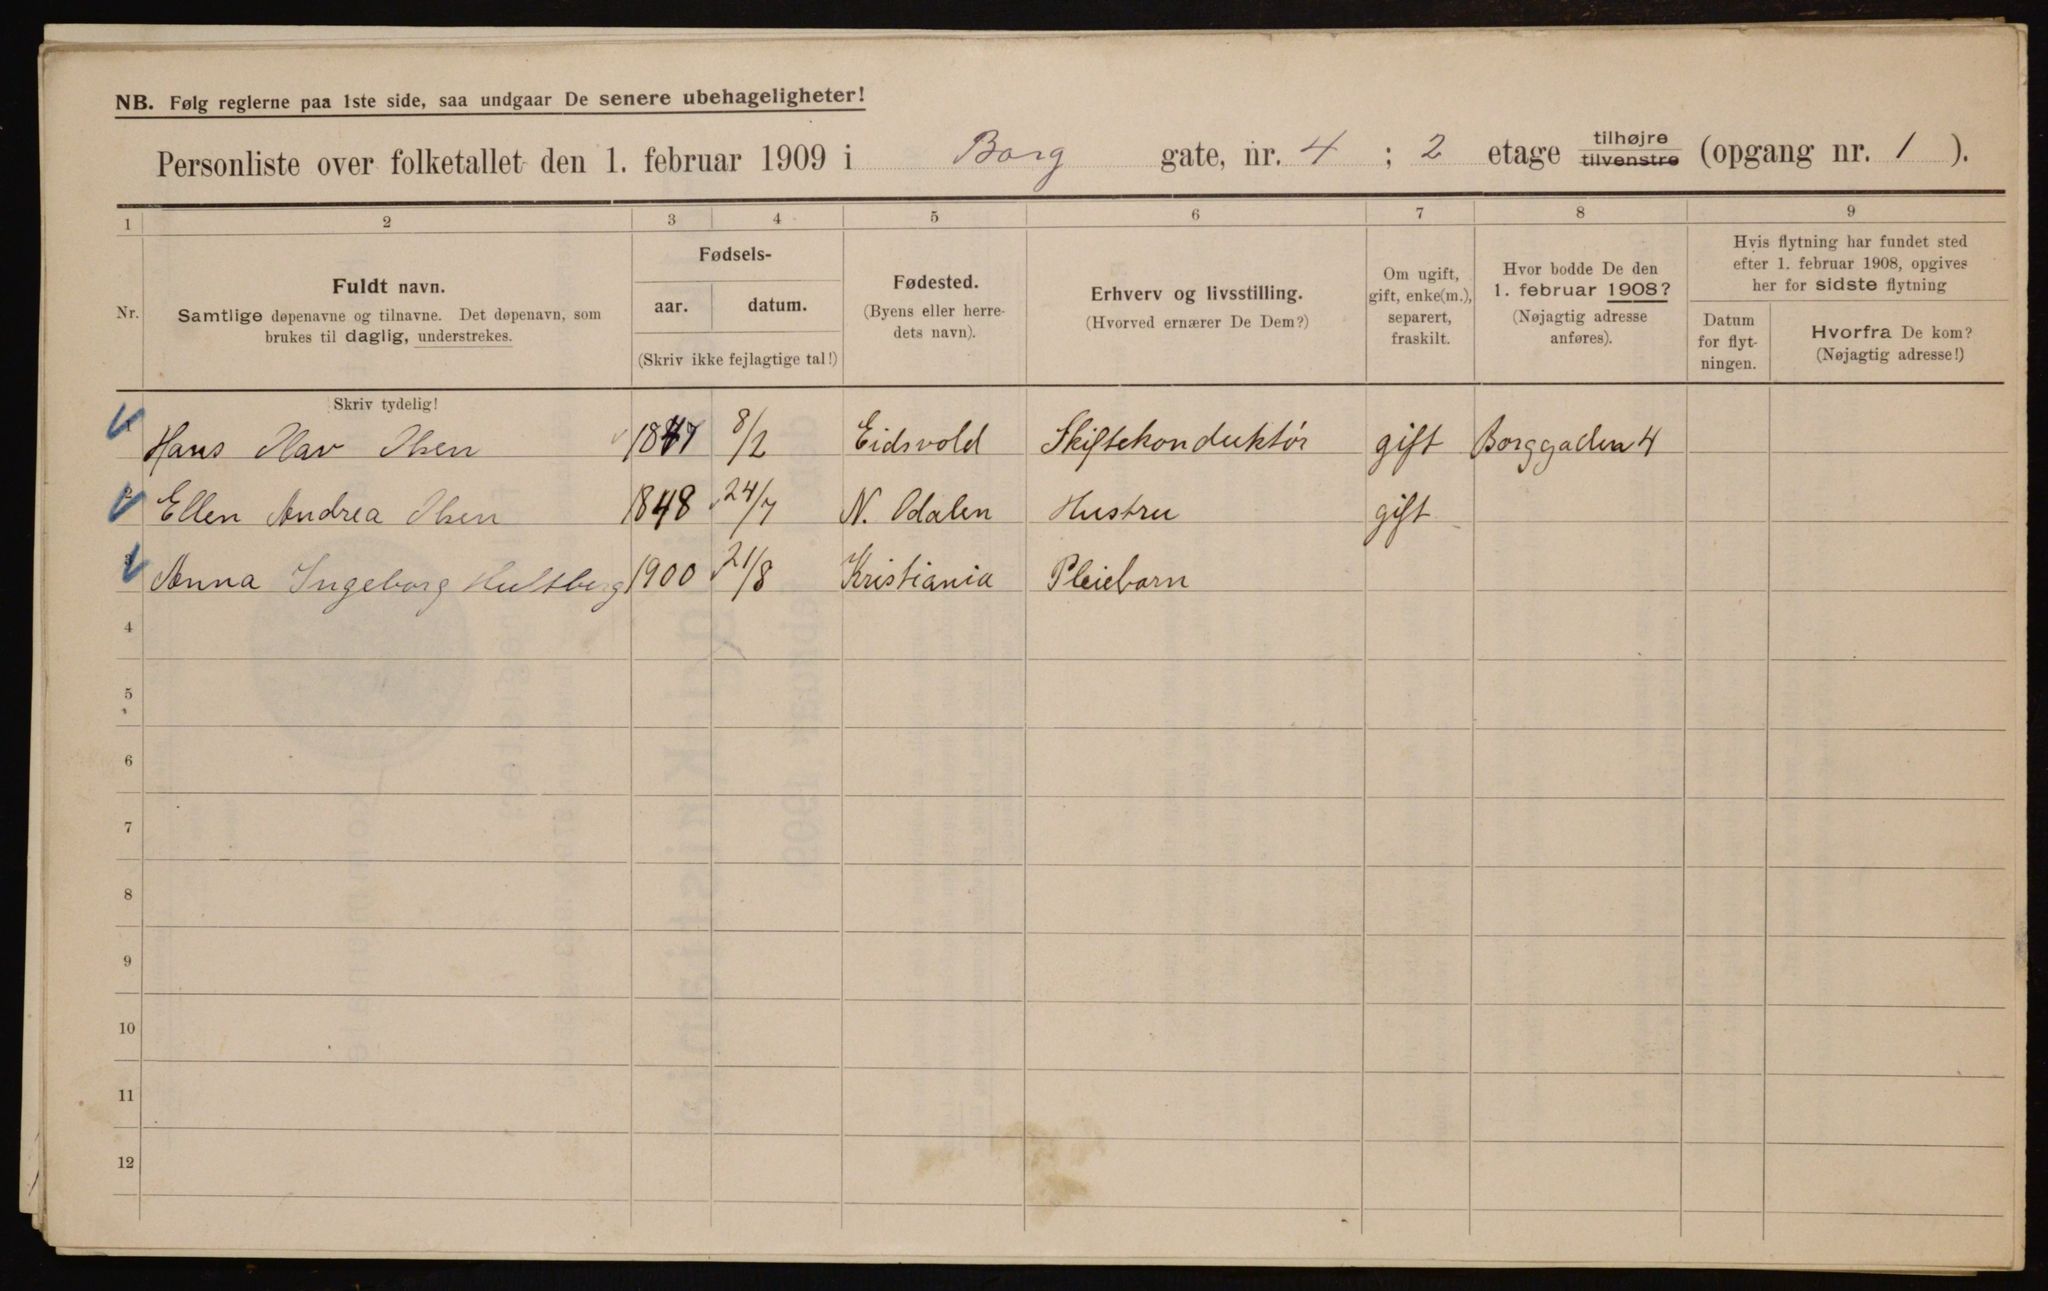 NB. Følg reglerne paa 1ste side, saa undgaar De senere ubehageligheter!
Personliste over folketallet den 1. februar 1909 i Borg gate, nr. 4 ; 2 etage tilhøjre tilvenstre (opgang nr. 1 ).
1 2 3 4 5 6 7 8 9
Nr.
Fuldt navn.
Samtlige døpenavne og tilnavne. Det døpenavn, som
brukes til daglig, understrekes.
Fødsels-
aar. datum.
(Skriv ikke fejlagtige tal!)
Fødested.
(Byens eller herre-
dets navn).
Erhverv og livsstilling.
(Hvorved ernærer De Dem?)
Om ugift,
gift, enke(m.),
separert,
fraskilt.
Hvor bodde De den
1. februar 1908?
(Nøjagtig adresse
anføres).
Hvis flytning har fundet sted
efter 1. februar 1908, opgives
her for sidste flytning
Datum
for flyt-
ningen.
Hvorfra De kom?
(Nøjagtig adresse!)
Skriv tydelig!
Hans Olav Olsen 1847 8/2 Eidsvold Skiftekonduktør gift Borggaden 4
Ellen Andrea Olsen 1848 24/7 N. Odalen Hustru gift
Anna Ingeborg Hultberg 1900 21/8 Kristiania Pleiebarn
4
5
6
7
8
9
10
11
12